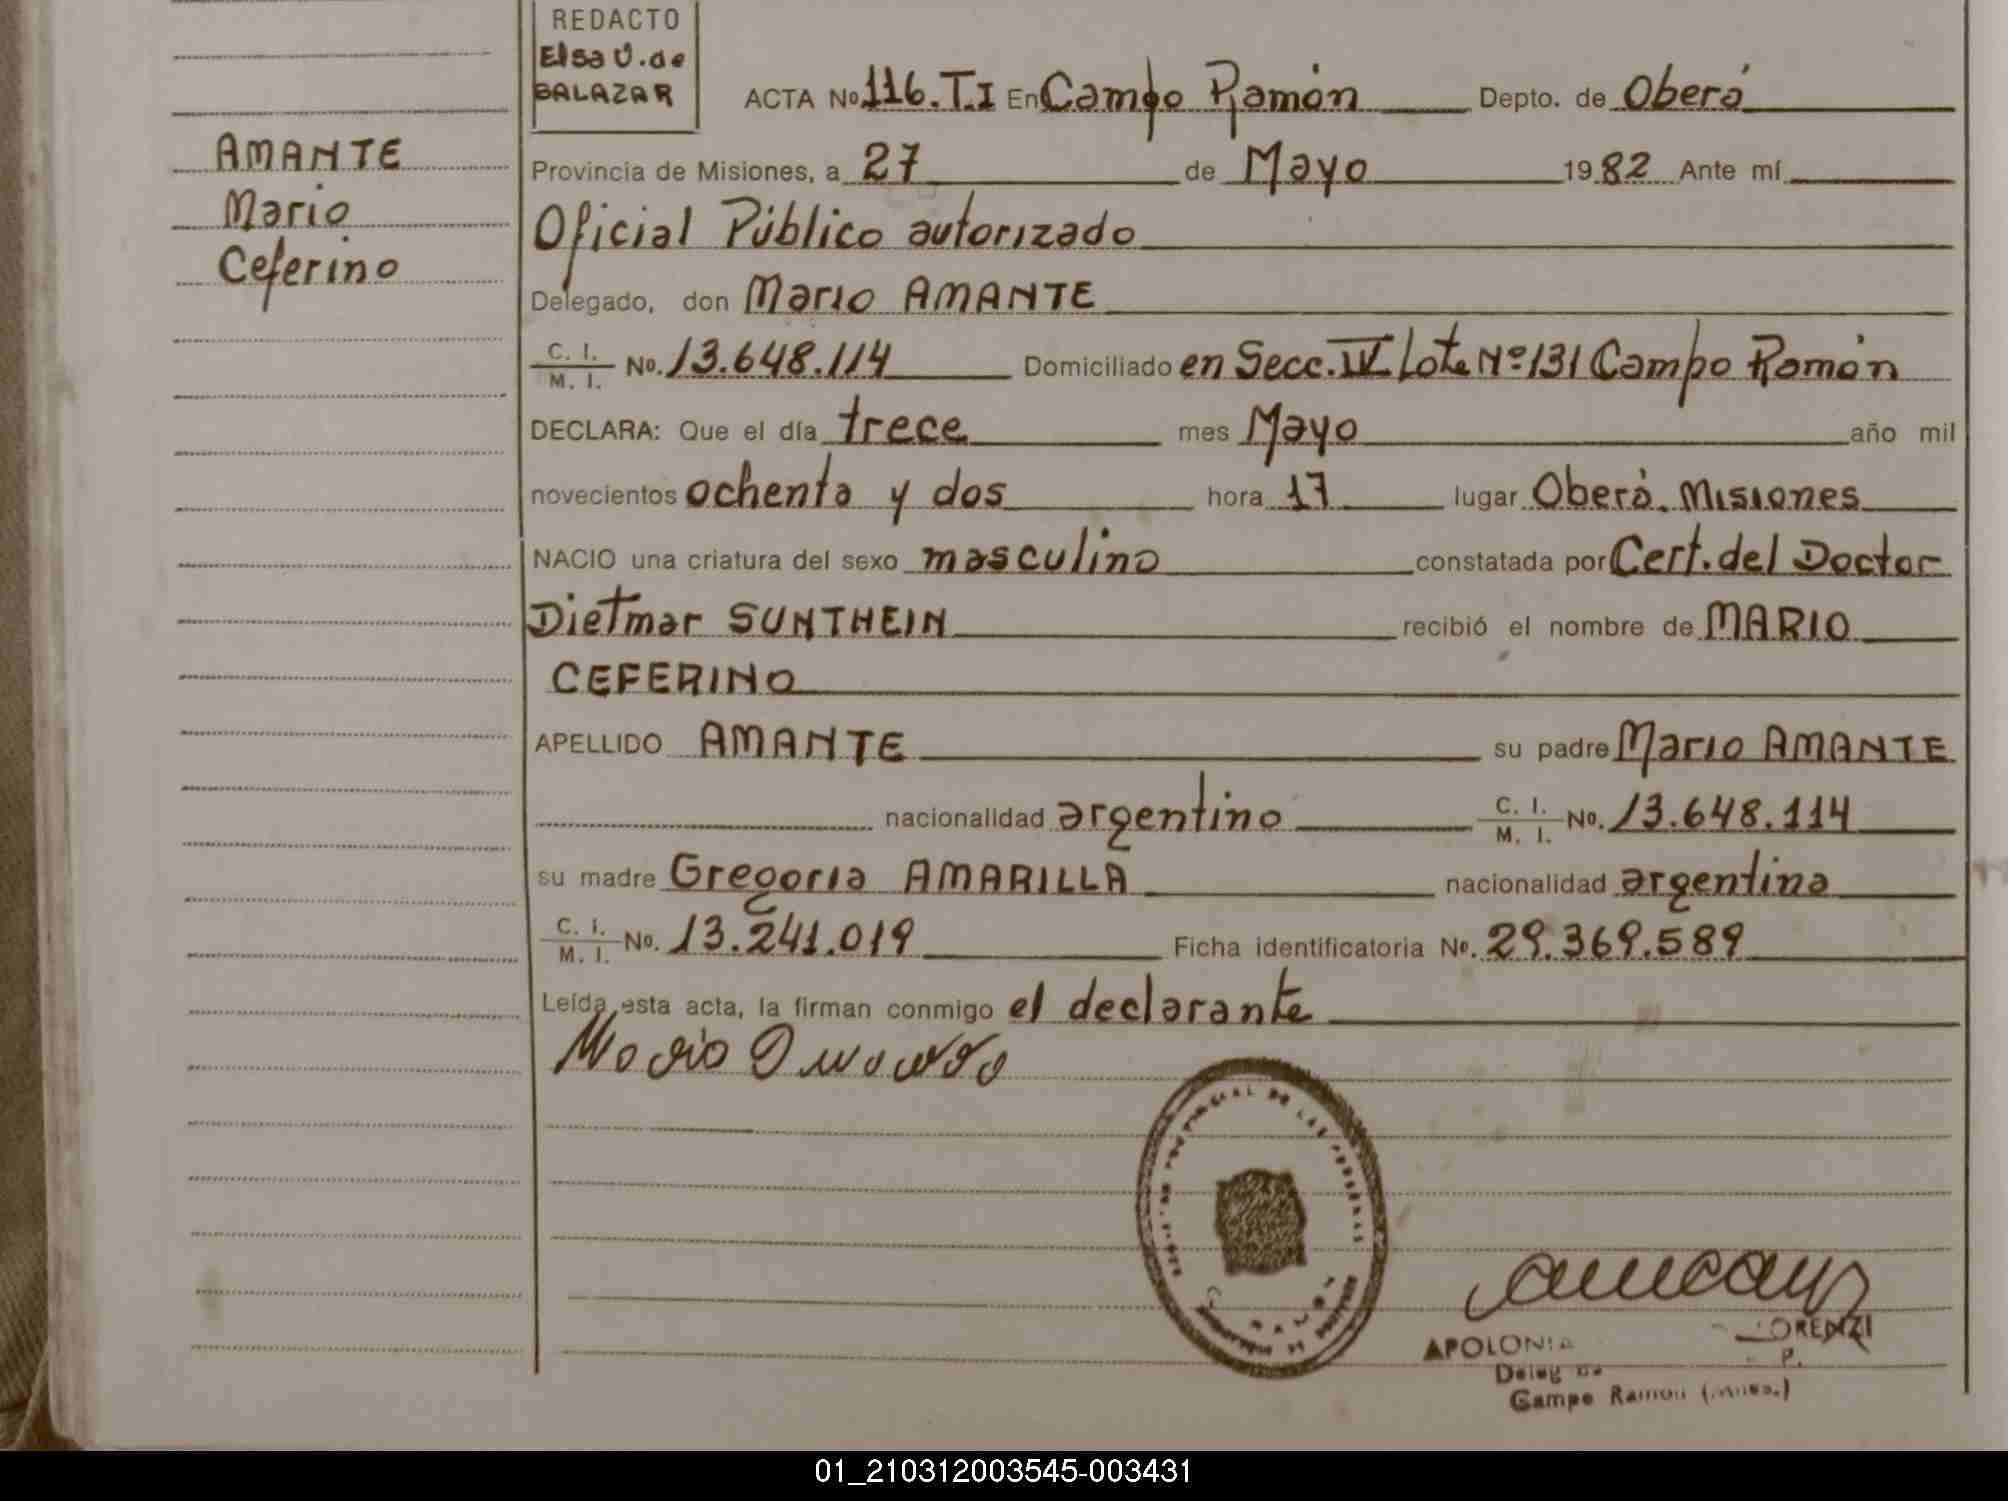 REDACTO
Elsa V. de
SALAZAR
ACTA No 116.T.I En Campo Ramón Depto. de Oberá
AMANTE
Mario
Ceferino
Provincia de Misiones, a 27 de Mayo 1982 Ante mí
Oficial Público autorizado
Delegado, don Mario AMANTE
C. I. / M. I. No. 13.648.114 Domiciliado en Secc. IV Lote Nº 131 Campo Ramón
DECLARA: Que el día trece mes Mayo año mil
novecientos ochenta y dos hora 17 lugar Oberá. Misiones
NACIO una criatura del sexo masculino constatada por Cert. del Doctor
Dietmar SUNTHEIN recibió el nombre de MARIO
CEFERINO
APELLIDO AMANTE su padre Mario AMANTE
nacionalidad argentino C. I. / M. I. No. 13.648.114
su madre Gregoria AMARILLA nacionalidad argentina
C. I. / M. I. No. 13.241.019 Ficha identificatoria No. 29.369.589
Leída esta acta, la firman conmigo el declarante
Mario Amante
APOLONIA LORENZI
Campo Ramon
01_210312003545-003431